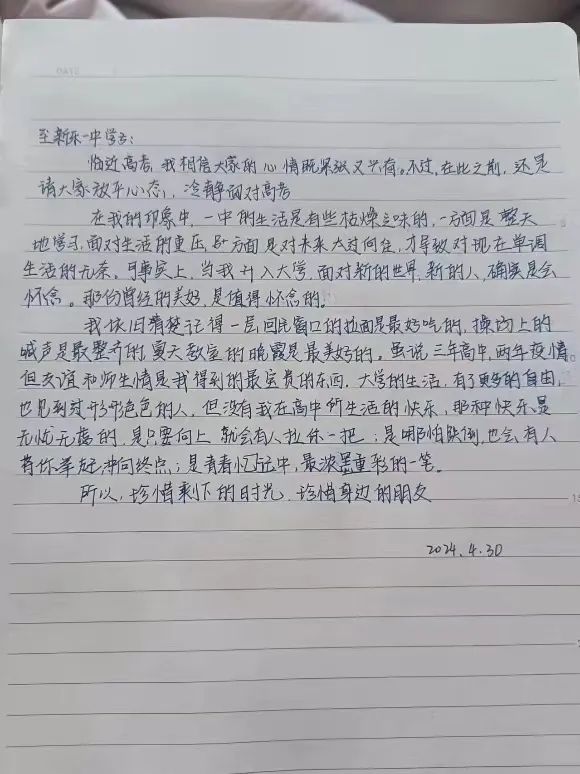 DATE
至新乐一中学子:
临近高考,我相信大家的心情既紧张又兴奋。不过,在此之前,还是
请大家放平心态,冷静面对高考
在我的印象中,一中的生活是有些枯燥乏味的,一方面是整天
地学习,面对生活的重压,另一方面是对未来太过向往,才导致对现在单调
生活的无奈。可事实上,当我升入大学,面对新的世界,新的人,确实是会
怀念。那份曾经的美好,是值得怀念的。
我依旧清楚记得一层回民窗口的拉面是最好吃的,操场上的
喊声是最整齐的,夏天教室的晚霞是最美好的。虽说三年高中,两年疫情
但友谊和师生情是我得到的最宝贵的东西。大学的生活,有了更多的自由,
也见到过形形色色的人,但没有我在高中所生活的快乐,那种快乐是
无忧无虑的,是只要向上 就会有人拉你一把;是哪怕跌倒,也会有人
背你举起冲向终点;是青春忆记中,最浓墨重彩的一笔。
所以,珍惜剩下的时光,珍惜身边的朋友
2024.4.30